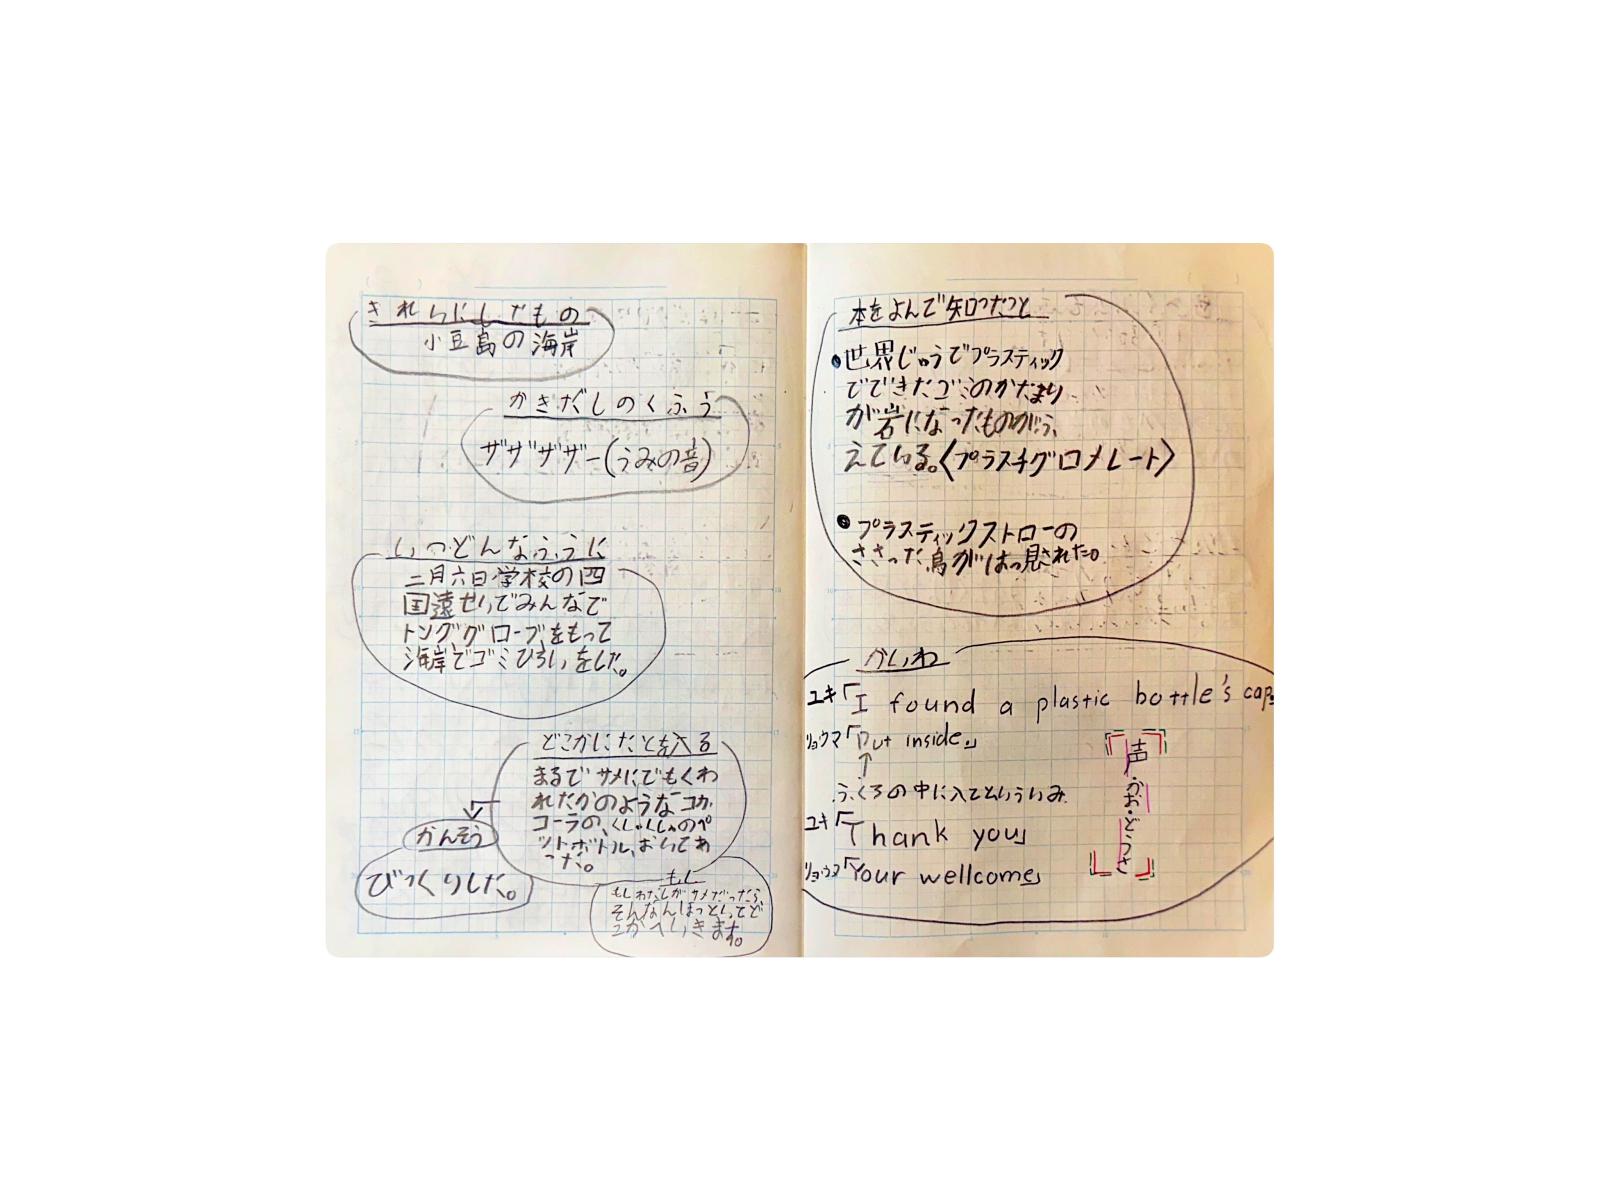 きれいにしたもの
小豆島の海岸
かきだしのくふう
ザザザザー(うみの音)
いつどんなふうに
二月六日学校の四
国遠せいでみんなで
トング、グローブ、をもって
海岸でゴミひろいをした。
どこかにたとえを入る
まるでサメにでもくわ
れたかのようなコカ
コーラの、くしゃくしゃのペ
ットボトル、おいてあ
った。
かんそう
びっくりした。
もし
もしわたしがサメだったら
そんなんほっといてど
こかへいきます。
本をよんで知ったこと
●世界じゅうでプラスティック
でできたゴミのかたまり
が岩になったものがふ
えている。〈プラスチグロメレート〉
●プラスティックストローの
ささった鳥がはっ見された。
かいわ
ユキ「I found a plastic bottle's cap
リョウマ「Put inside.」
↑
ふくろの中に入てといういみ
ユキ「Thank you」
リョウマ「Your wellcome」
声・かお・どうさ